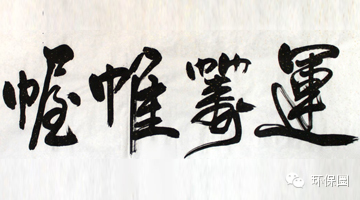 運籌帷幄
环保圈